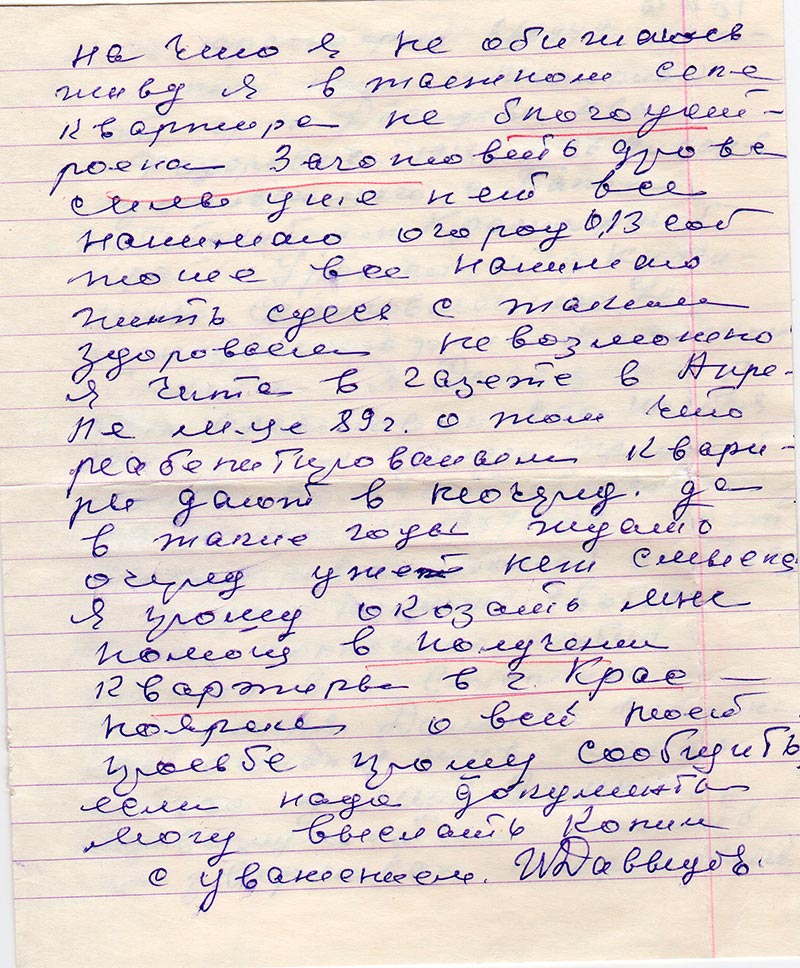 на что я не обижаюсь
живу я в таёжном селе
квартира не благоуст-
роена Заготовить дрова
силы уже нет все
нанимаю огород 0,13 сот
тоже все нанимаю
жить здесь с таким
здоровьем невозможно
я чита в газете в Апре-
ле м-це 89 г. о том что
реабелитированым кварти-
ры дают в неочеред. да
в такие годы ждать
очеред уже нет смысла
Я прошу оказать мне
помощ в получении
квартиры в г. Крас-
ноярске о всей моей
просьбе прошу сообщить
если надо документы
могу выслать копии
с уважением.